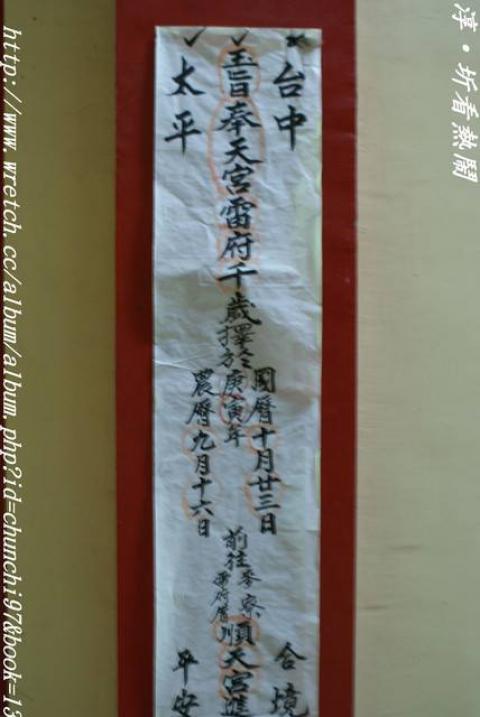 淳・圻看熱鬧
台中
太平
玉旨奉天宮雷府千歲擇於庚寅年
國曆十月廿三日
農曆九月十六日
前往麥寮順天宮進
合境
平安
http://www.wretch.cc/album/album.php?id=chunchi97&book=13